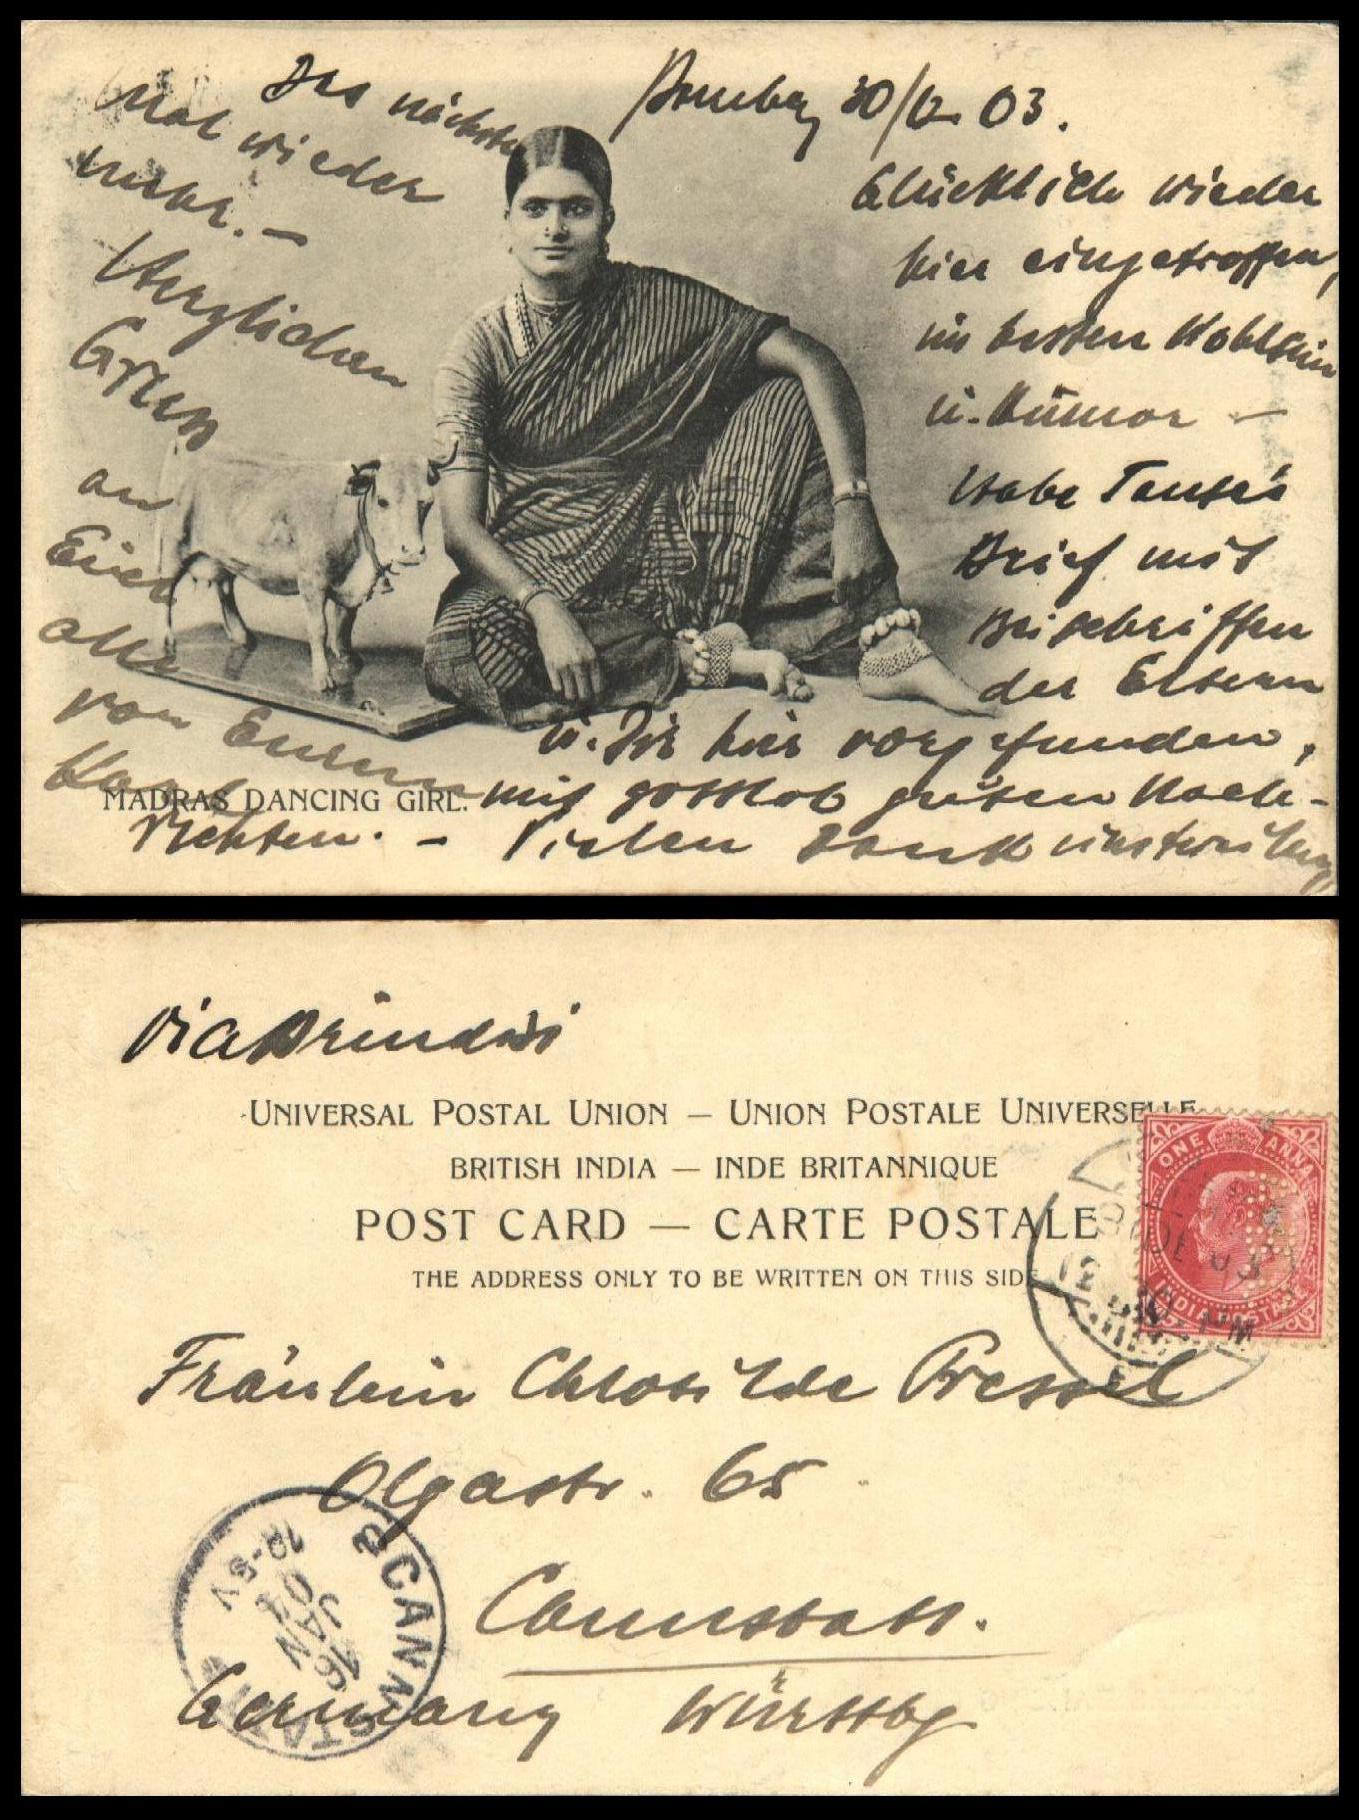 Bombay 30/12. 03.
Glücklich wieder
hier eingetroffen,
im besten Wohlsein
u. Humor –
Habe Tante's
Brief mit
Beischriffen
der Eltern
u. Dir hier vorgefunden,
mit gottlob guten Nach-
richten. – Vielen Dank einstweilen
Das nächste
Mal wieder
mehr. –
Herzlichen
Gruss
an
Euch
alle
von Eurem
MADRAS DANCING GIRL.
Via Brindisi
UNIVERSAL POSTAL UNION — UNION POSTALE UNIVERSELLE
BRITISH INDIA — INDE BRITANNIQUE
POST CARD — CARTE POSTALE
THE ADDRESS ONLY TO BE WRITTEN ON THIS SIDE
ONE ANNA
INDIA POSTAGE
Fräulein Chlotilde Pressel
Olgastr. 65
Cannstatt.
Germany Württbg
CANNSTATT
16
JAN
04